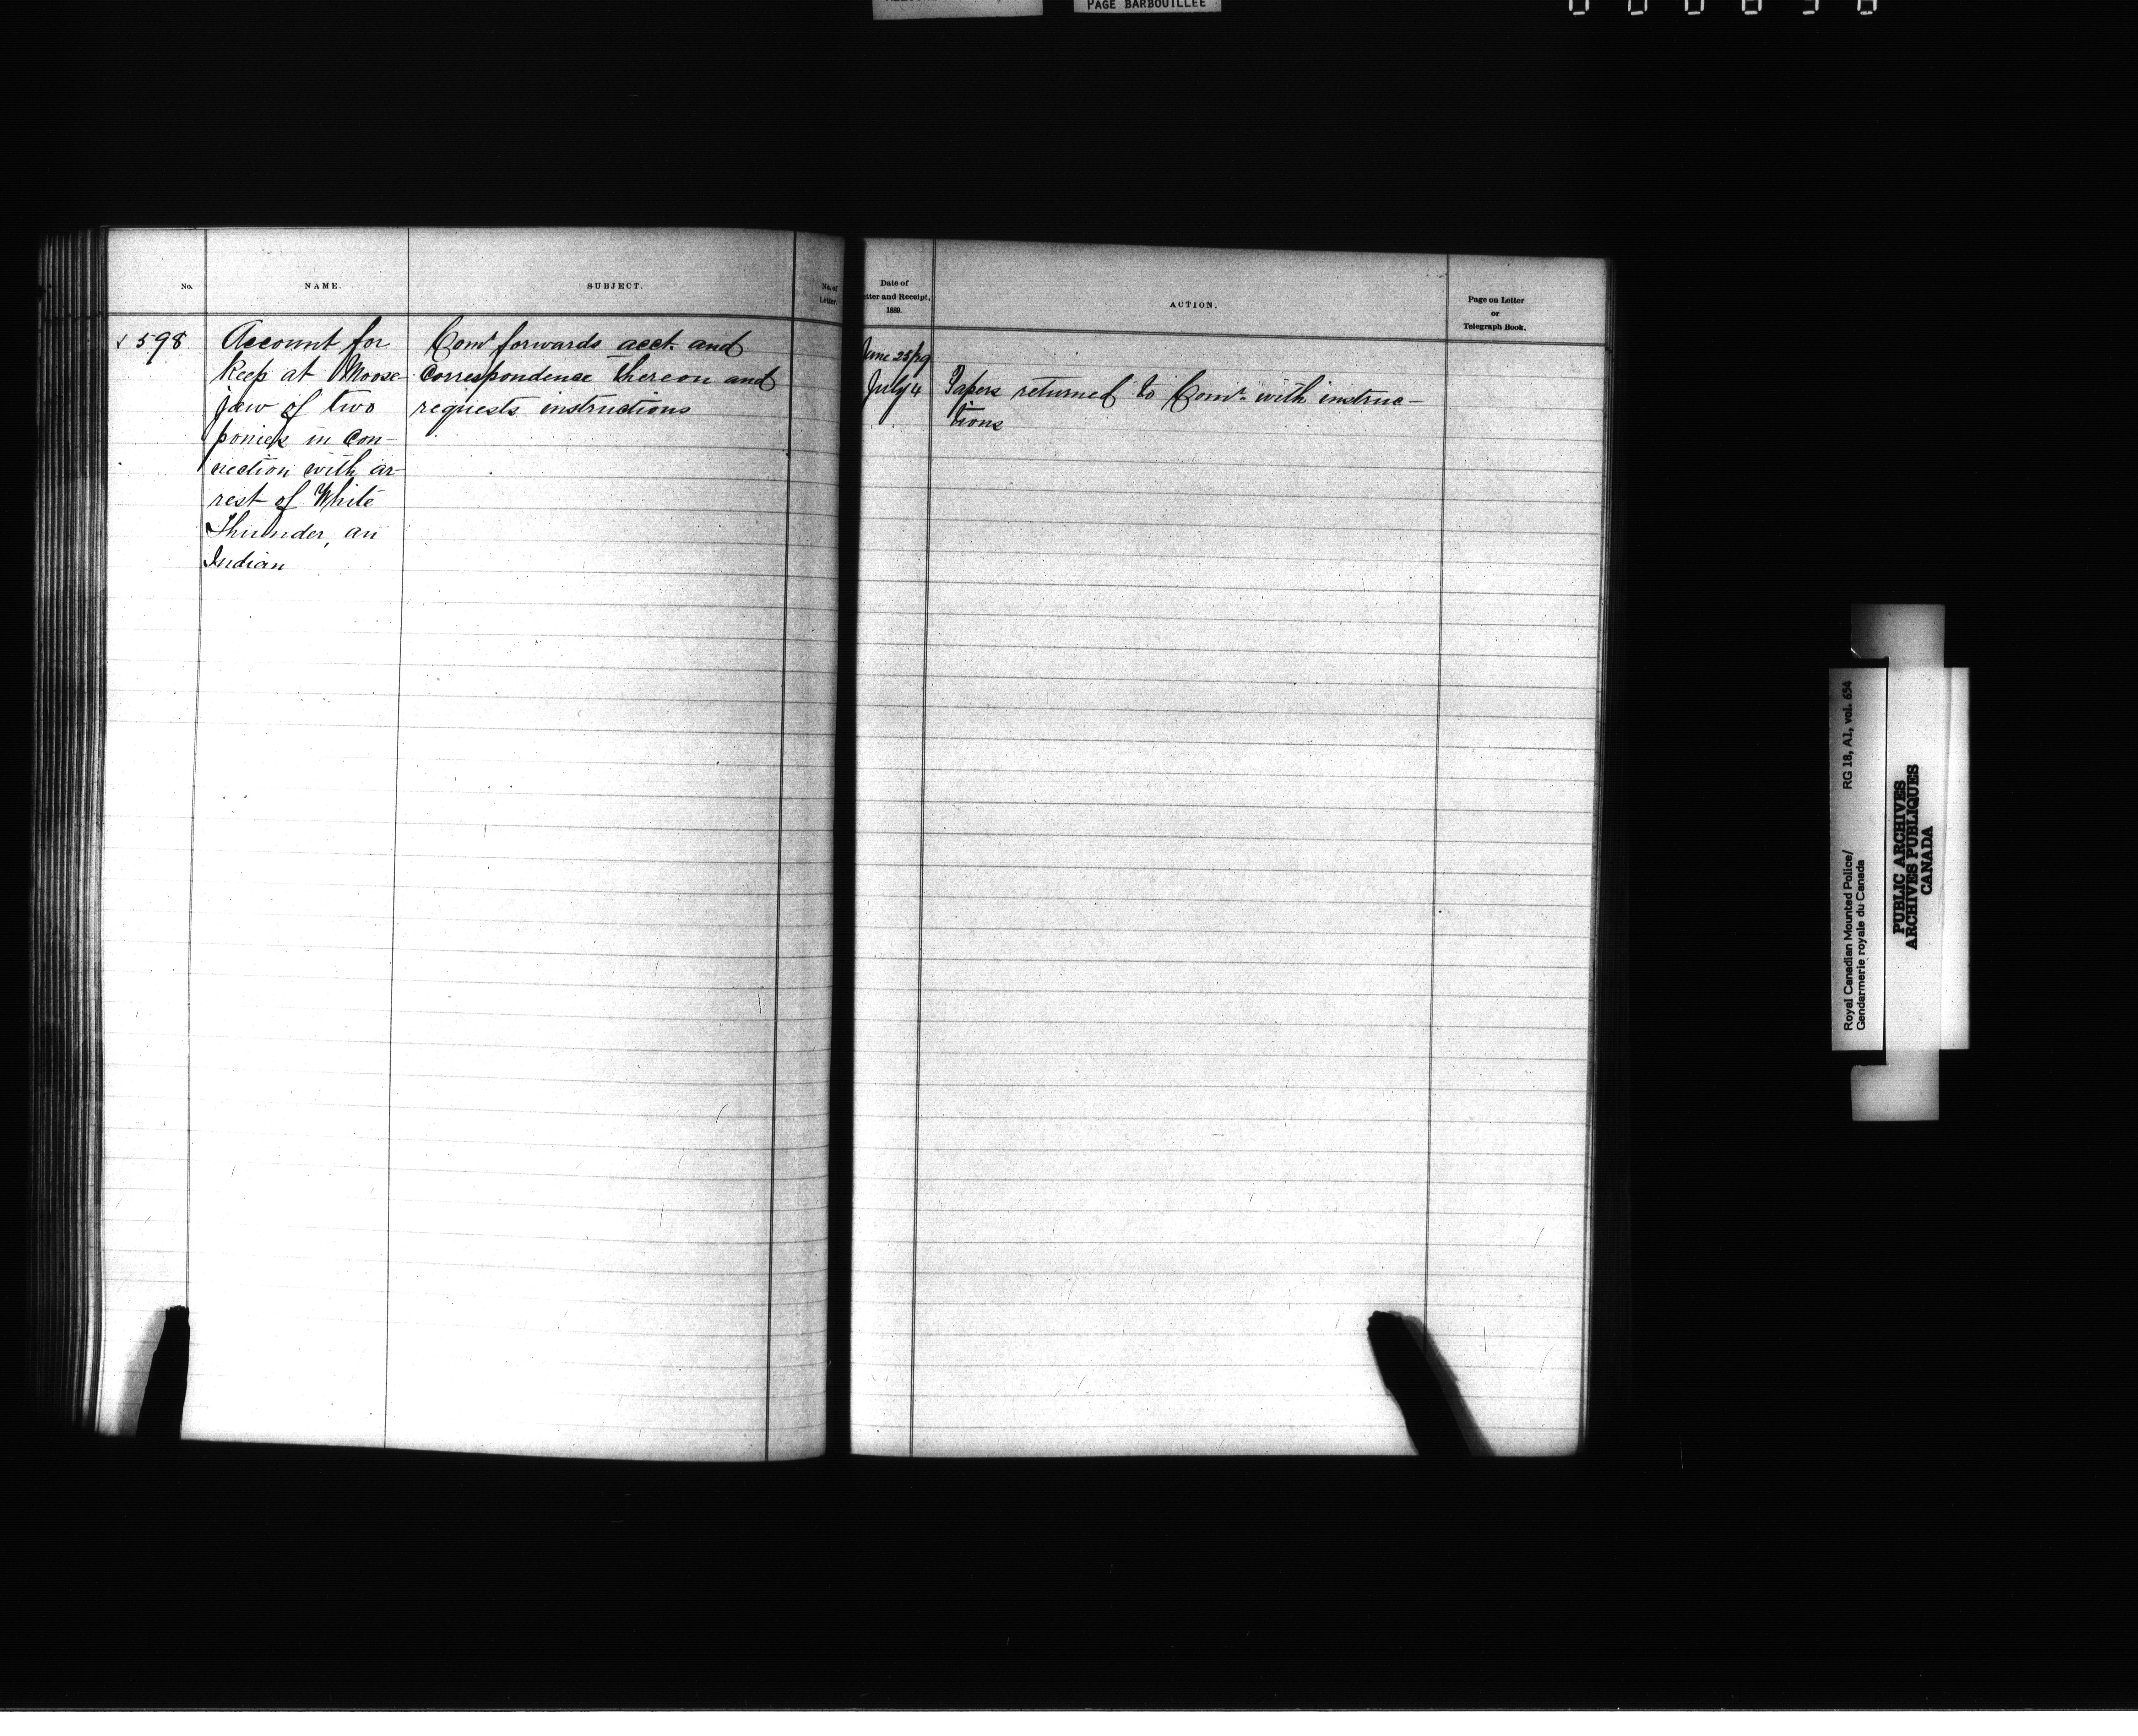 PAGE BARBOUILLEE
No.
NAME.
SUBJECT.
No. of
Letter.
Date of
tter and Receipt,
1889.
ACTION.
Page on Letter
or
Telegraph Book.
√ 598
Account for
keep at Moose-
jaw of two
ponies in con-
nection with ar-
rest of White
Thunder, an
Indian
Comr forwards acct. and
Correspondence thereon and
requests instructions
June 25/29
July 4
Papers returned to Comr. with instruc-
tions
RG 18, A1, vol. 654
Royal Canadian Mounted Police/
Gendarmerie royale du Canada
PUBLIC ARCHIVES
ARCHIVES PUBLIQUES
CANADA